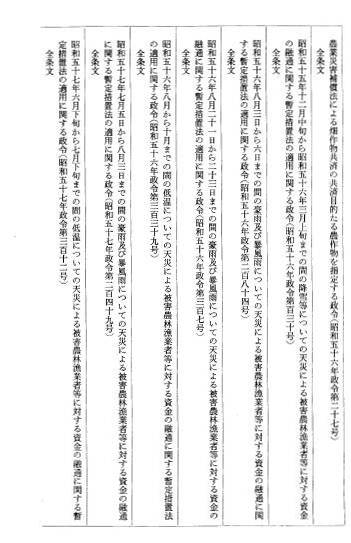 農業災害補償法による畑作物共済の共済目的たる農作物を指定する政令(昭和五十六年政令第二十七号)
全条文
昭和五十五年十二月中旬から昭和五十六年三月上旬までの間の降雪等についての天災による被害農林漁業者等に対する資金
の融通に関する暫定措置法の適用に関する政令(昭和五十六年政令第百三十号)
全条文
昭和五十六年八月三日から六日までの間の豪雨及び暴風雨についての天災による被害農林漁業者等に対する資金の融通に関
する暫定措置法の適用に関する政令(昭和五十六年政令第二百八十四号)
全条文
昭和五十六年八月二十一日から二十三日までの間の豪雨及び暴風雨についての天災による被害農林漁業者等に対する資金の
融通に関する暫定措置法の適用に関する政令(昭和五十六年政令第三百七号)
全条文
昭和五十六年八月から十月までの間の低温についての天災による被害農林漁業者等に対する資金の融通に関する暫定措置法
の適用に関する政令(昭和五十六年政令第三百三十九号)
全条文
昭和五十七年七月五日から八月三日までの間の豪雨及び暴風雨についての天災による被害農林漁業者等に対する資金の融通
に関する暫定措置法の適用に関する政令(昭和五十七年政令第二百四十九号)
全条文
昭和五十七年六月下旬から七月下旬までの間の低温についての天災による被害農林漁業者等に対する資金の融通に関する暫
定措置法の適用に関する政令(昭和五十七年政令第三百十二号)
全条文